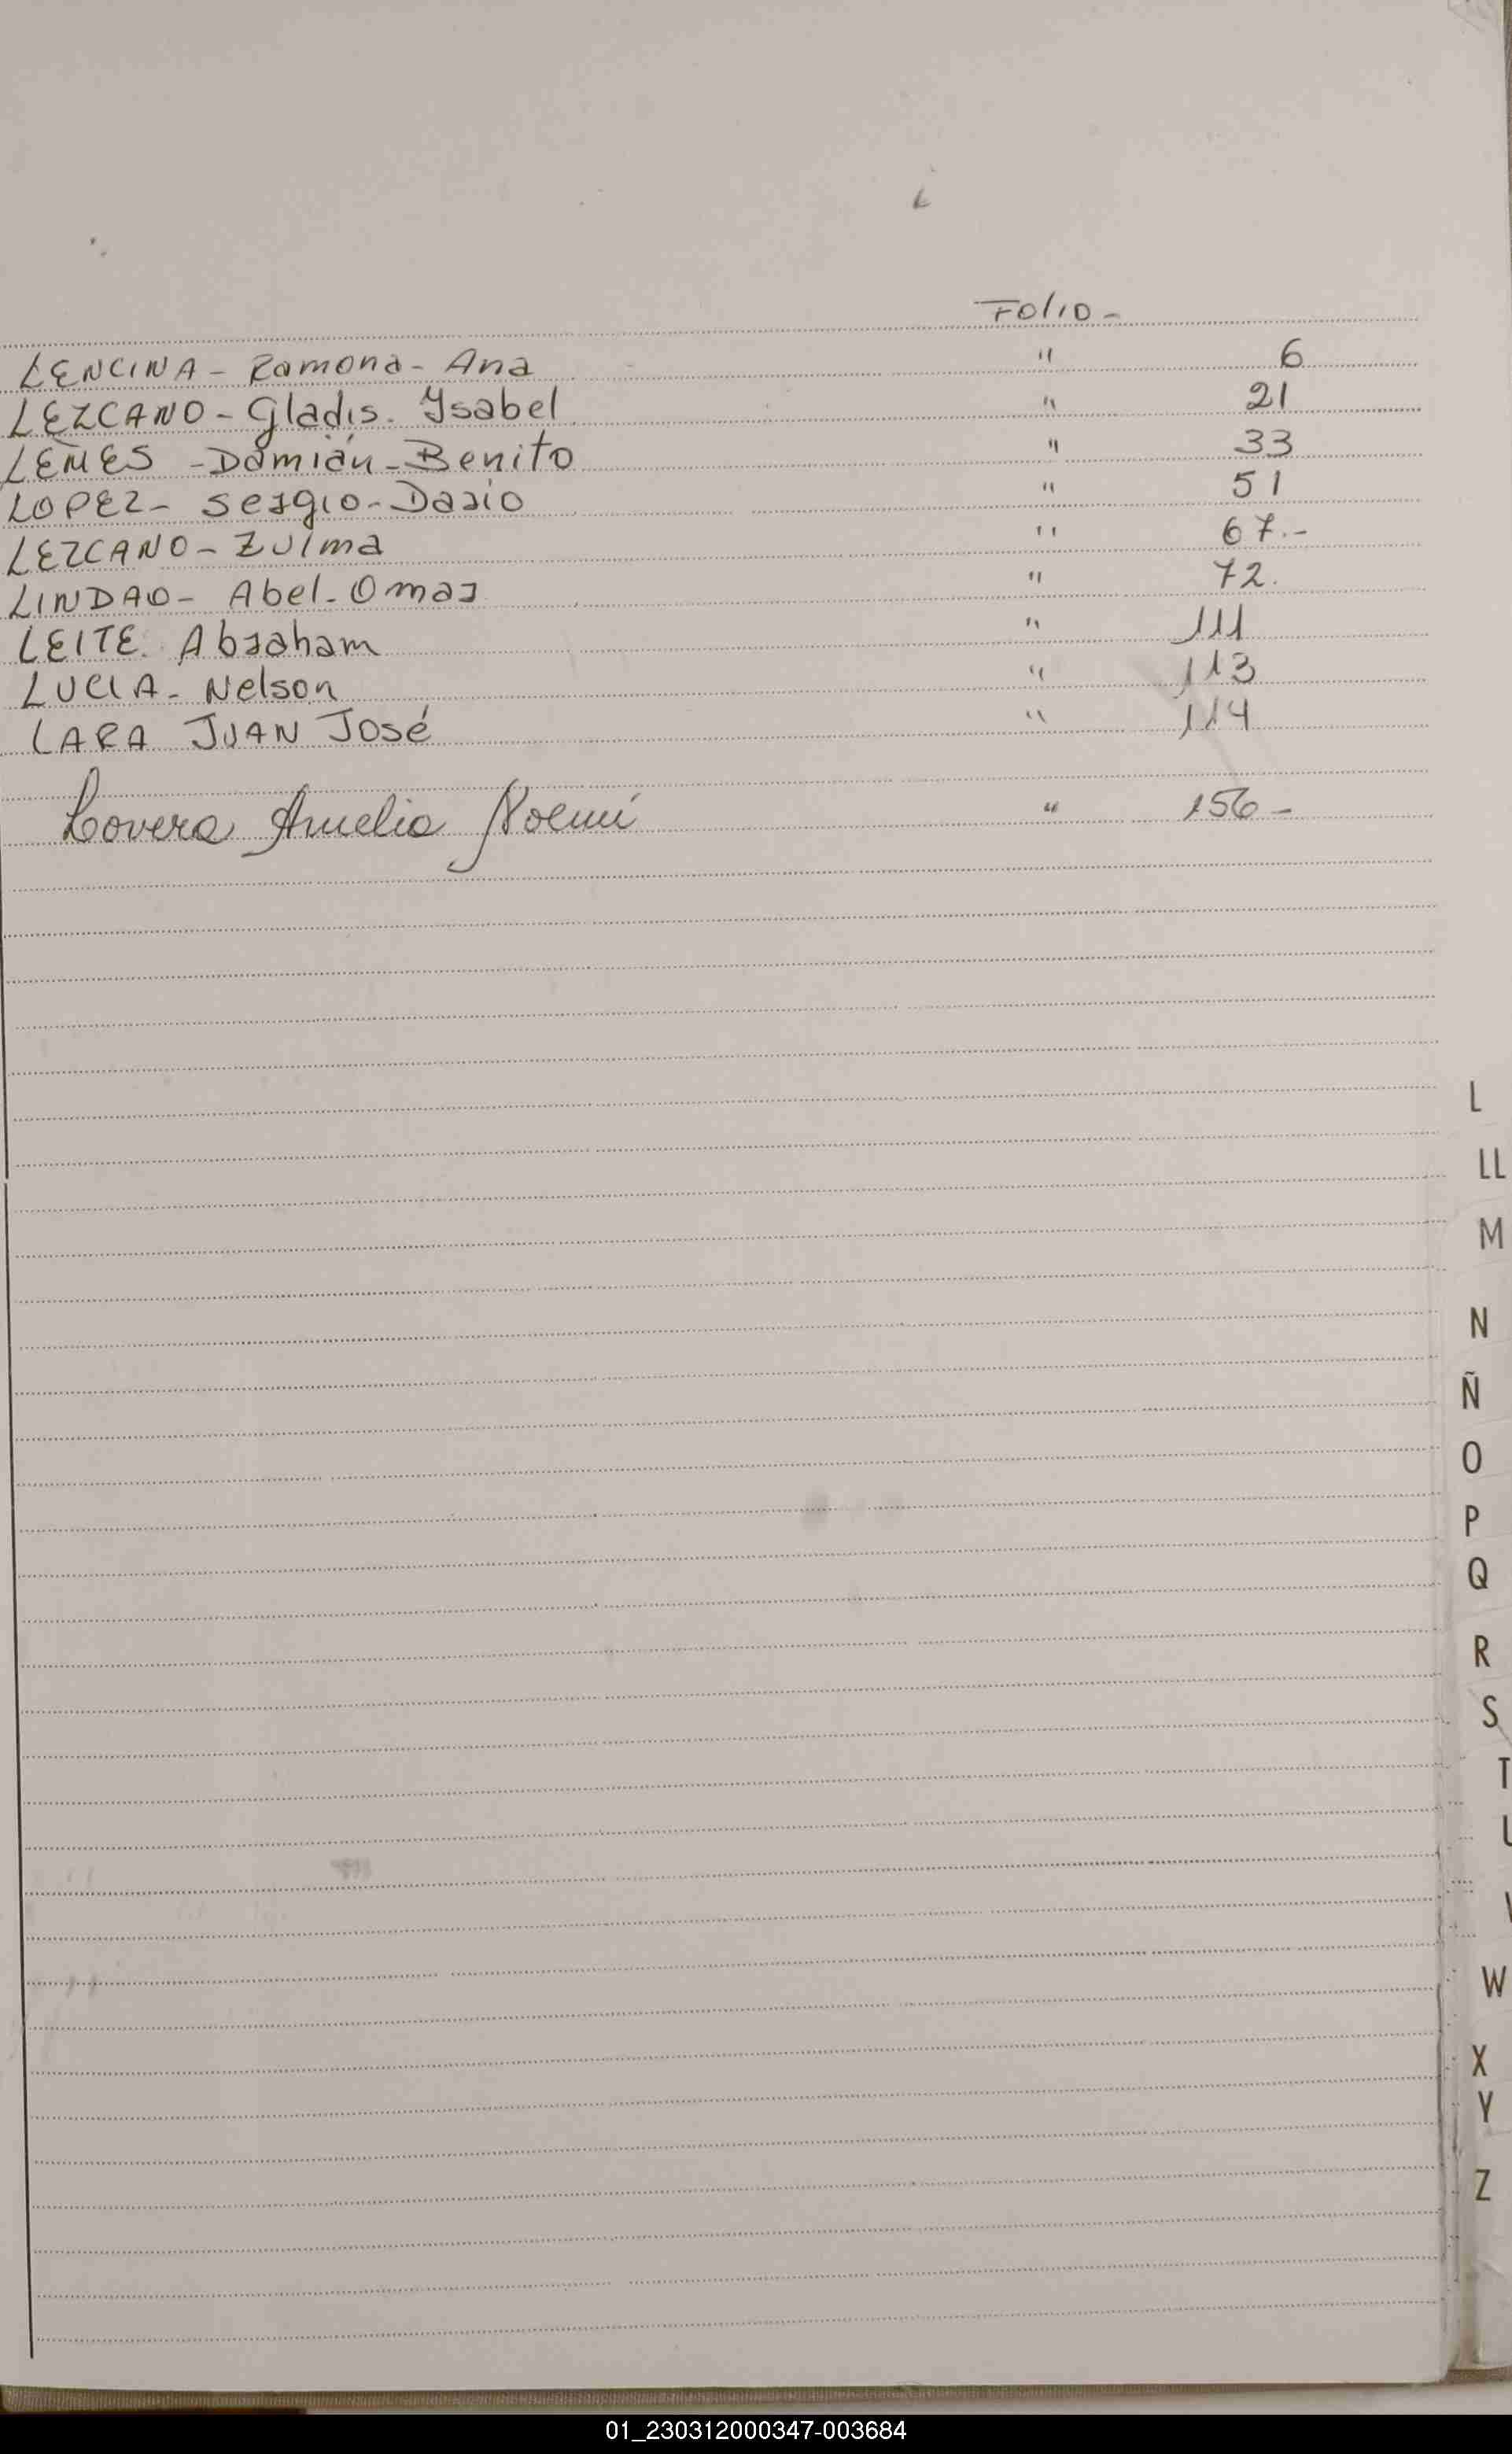 Folio-
LENCINA - Ramona - Ana " 6
LEZCANO - Gladis. Ysabel " 21
LEMES - Damián - Benito " 33
LOPEZ - Sergio - Dario " 51
LEZCANO - Zulma " 67.-
LINDAO - Abel - Omar " 72.
LEITE. Abraham " 111
LUCIA - Nelson " 113
LARA JUAN José " 114
Lovera Amelia Noemí " 156-
L
LL
M
N
Ñ
O
P
Q
R
S
T
U
V
W
X
Y
Z
01_230312000347-003684